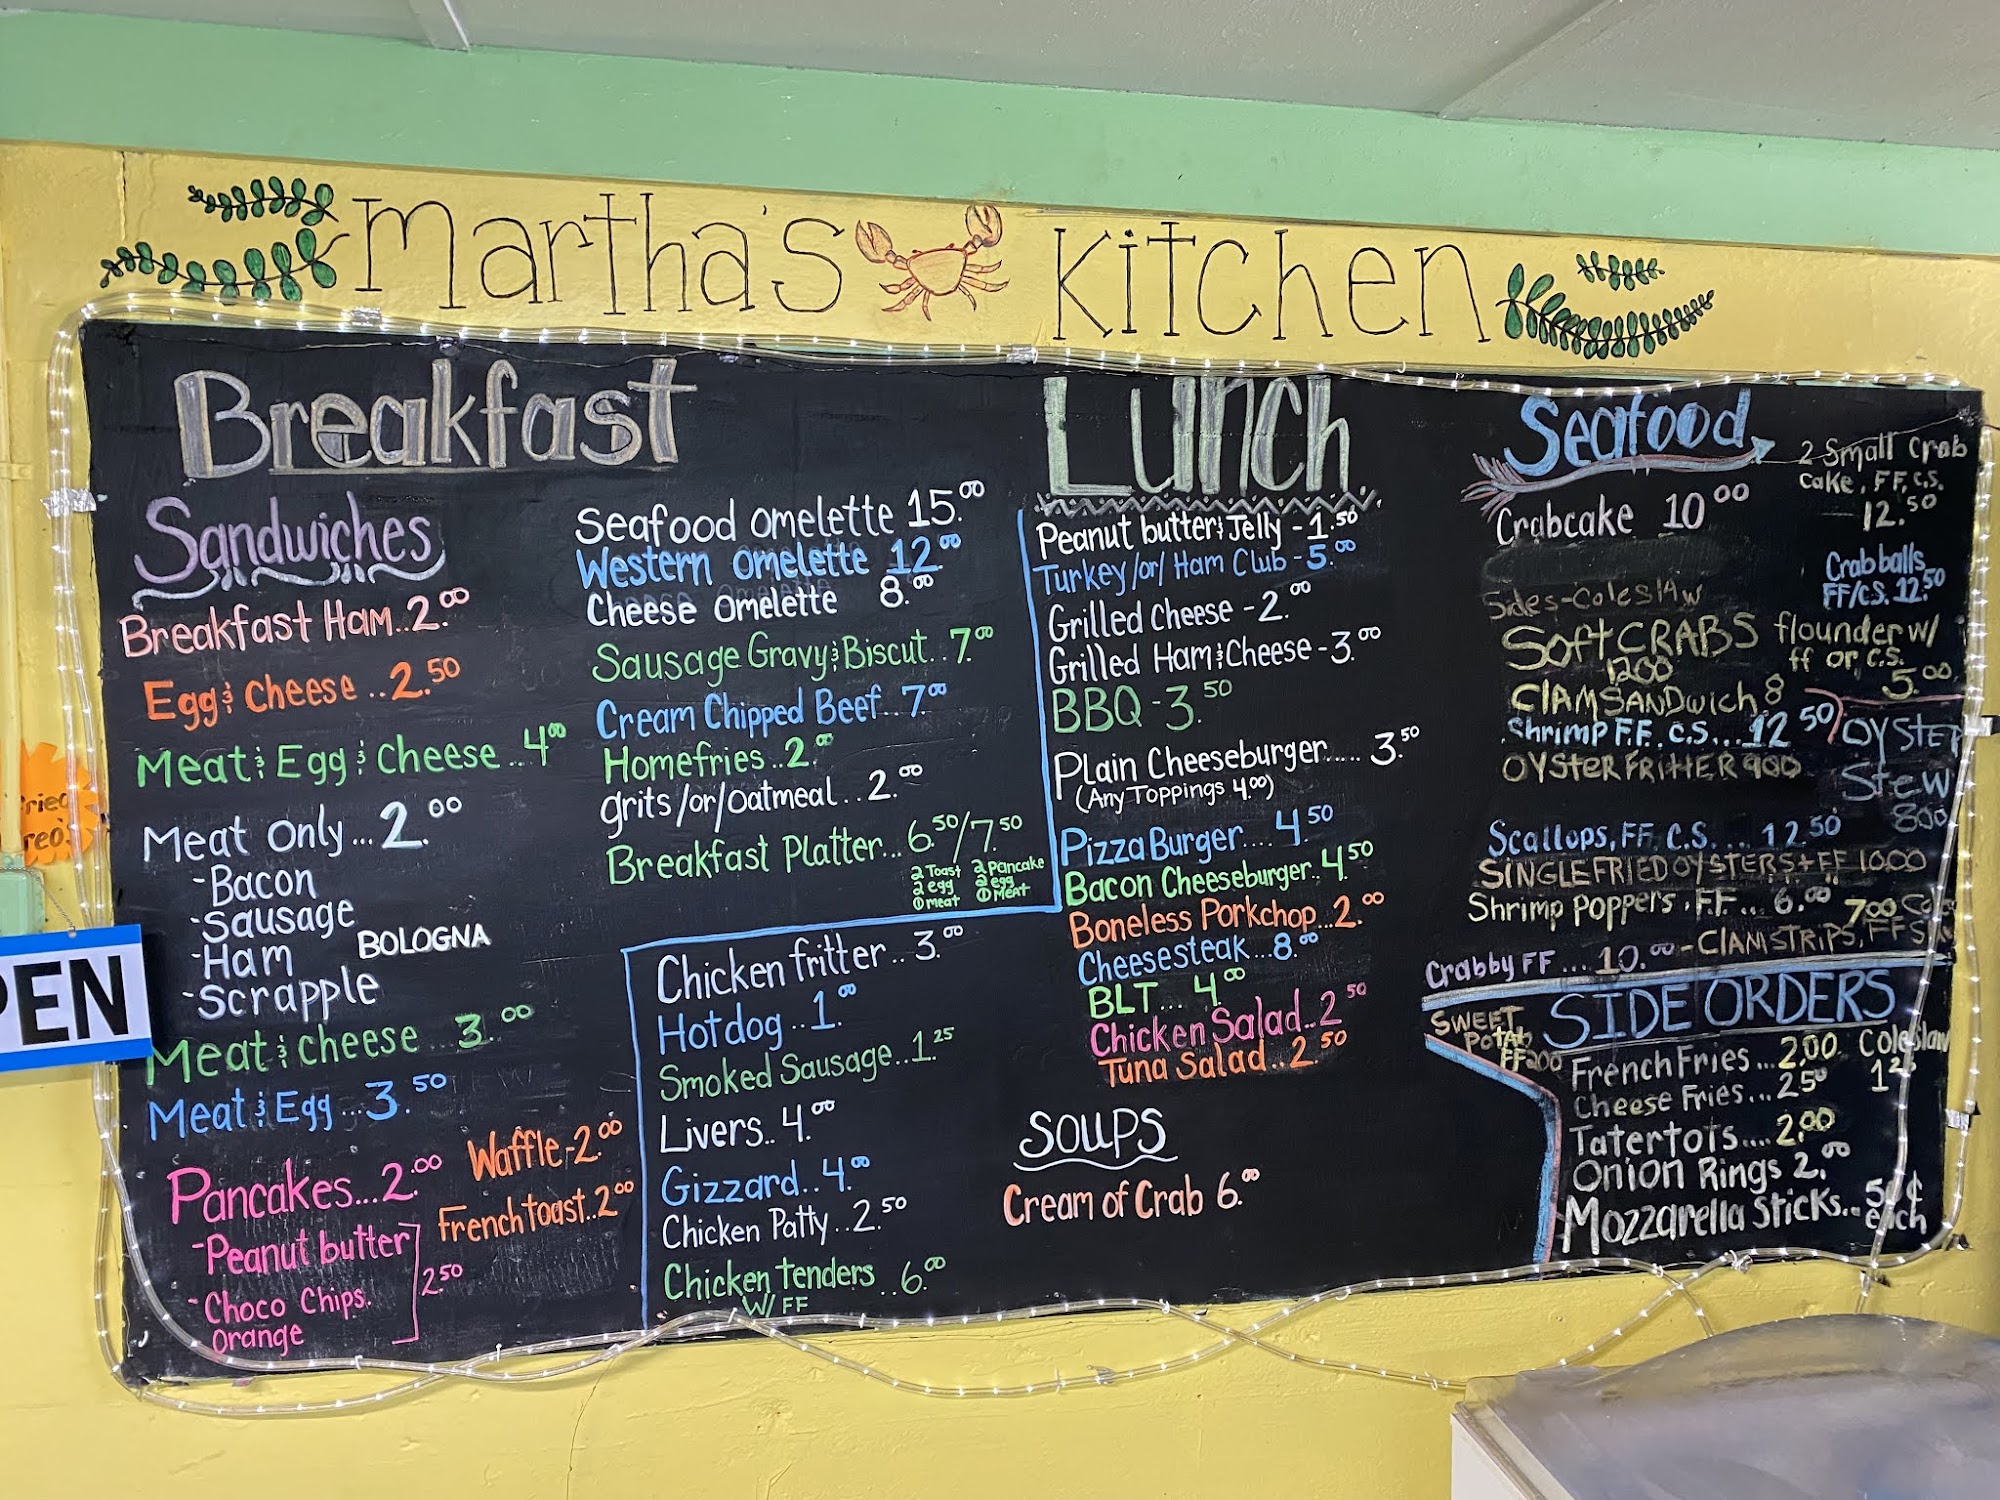 Martha's Kitchen
Breakfast
Sandwiches
Breakfast Ham..2.00
Egg & Cheese..2.50
Meat & Egg & Cheese...4.00
Meat Only...2.00
-Bacon
-Sausage
-Ham
BOLOGNA
-Scrapple
Meat & Cheese...3.00
Meat & Egg...3.50
Pancakes...2.00
-Peanut butter
-Choco Chips.
Orange
2.50
Waffle-2.00
French toast..2.00
Seafood Omelette 15.00
Western Omelette 12.00
Cheese Omelette 8.00
Sausage Gravy & Biscut..7.00
Cream Chipped Beef..7.00
Homefries..2.00
grits/or/oatmeal..2.00
Breakfast Platter...6.50/7.50
2 Toast
2 egg
① meat
2 Pancake
2 egg
① Meat
Chicken fritter..3.00
Hotdog..1.00
Smoked Sausage..1.25
Livers..4.00
Gizzard..4.00
Chicken Patty..2.50
Chicken tenders..6.00
W/ FF
Lunch
Peanut butter & Jelly-1.50
Turkey/or/Ham Club-5.00
Grilled Cheese-2.00
Grilled Ham & Cheese-3.00
BBQ-3.50
Plain Cheeseburger.....3.50
(Any Toppings 4.00)
Pizza Burger....4.50
Bacon Cheeseburger..4.50
Boneless Porkchop...2.00
Cheesesteak...8.00
BLT...4.00
Chicken Salad..2.50
Tuna Salad..2.50
SOUPS
Cream of Crab 6.00
Seafood
Crabcake 10.00
2 Small Crab
Cake, FF, C.S.
12.50
Crab balls
FF/C.S. 12.50
Sides-Coleslaw
Soft CRABS
1200
flounder w/
ff or c.s.
5.00
CLAM SANDwich 8
Shrimp F.F. C.S...12.50
OYSTER FRITTER 900
OYSTER
Stew
800
Scallops, FF, C.S....12.50
SINGLE FRIED OYSTERS + FF 1000
Shrimp Poppers.F.F...6.00
7.00
CLAM STRIPS, FF
Crabby FF...10.00
SIDE ORDERS
SWEET
POTATO
FF 200
French Fries...2.00
Coleslaw
1.25
Cheese Fries...2.50
Tatertots....2.00
Onion Rings 2.00
Mozzarella Sticks..50¢
each
PEN